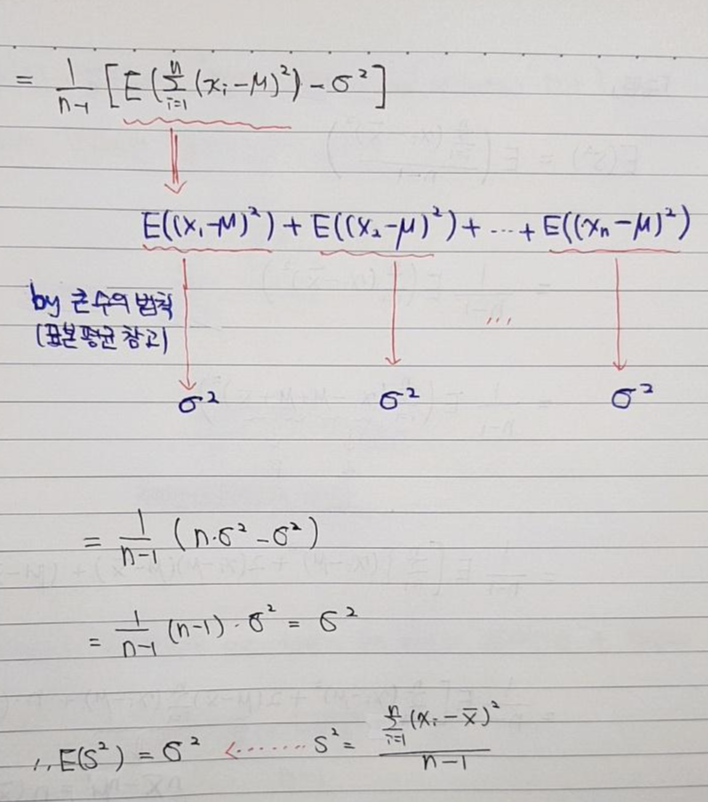 = 1/(n-1) [E(Σ_{i=1}^{n} (x_i-μ)²) - σ²]
E((x₁-μ)²) + E((x₂-μ)²) + ... + E((xₙ-μ)²)
by 큰수의 법칙
(표본평균 참고)
...
σ² σ² σ²
= 1/(n-1) (n·σ² - σ²)
= 1/(n-1) (n-1)·σ² = σ²
∴ E(S²) = σ² <······· S² = Σ_{i=1}^{n} (x_i - x̄)² / (n-1)